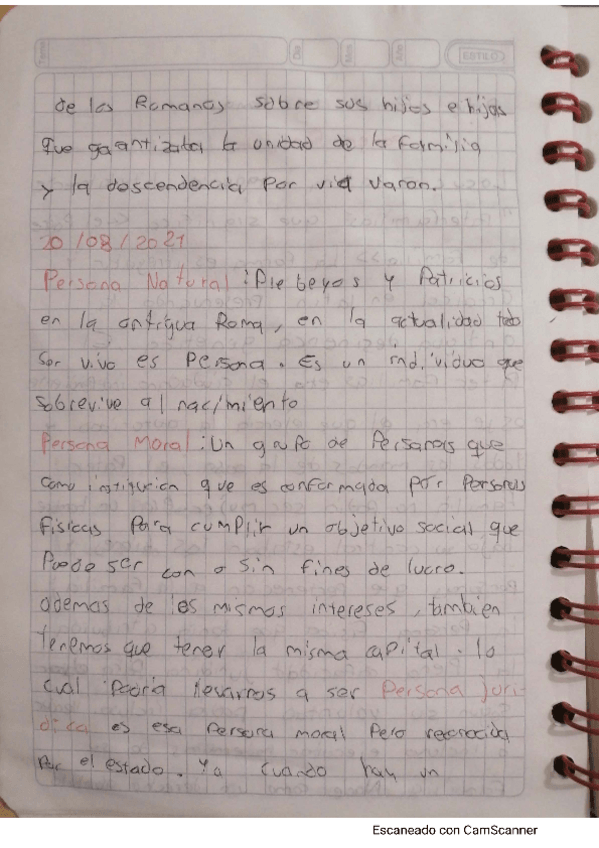 Tema Dia Mes Año ESTILO
de los Romanos sobre sus hijos e hijas
que garantizaba la unidad de la familia
y la descendencia por via varon.
20/08/2021
Persona Natural: Plebeyos y Patricios
en la antigua Roma, en la actualidad todo
ser vivo es Persona. Es un individuo que
sobrevive al nacimiento
Persona Moral: Un grupo de Personas que
como que es conformada por Personas
Fisicas Para cumplir un objetivo social que
Puede ser con o sin fines de lucro.
ademas de los mismos intereses, tambien
tenemos que tener la misma capital. lo
cual Podria llevarnos a ser Persona Juri-
dica es esa Persona moral Pero reconocida
Por el estado. Ya cuando hay un
Escaneado con CamScanner